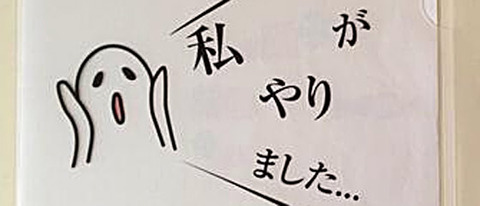 私が
やり
ました...